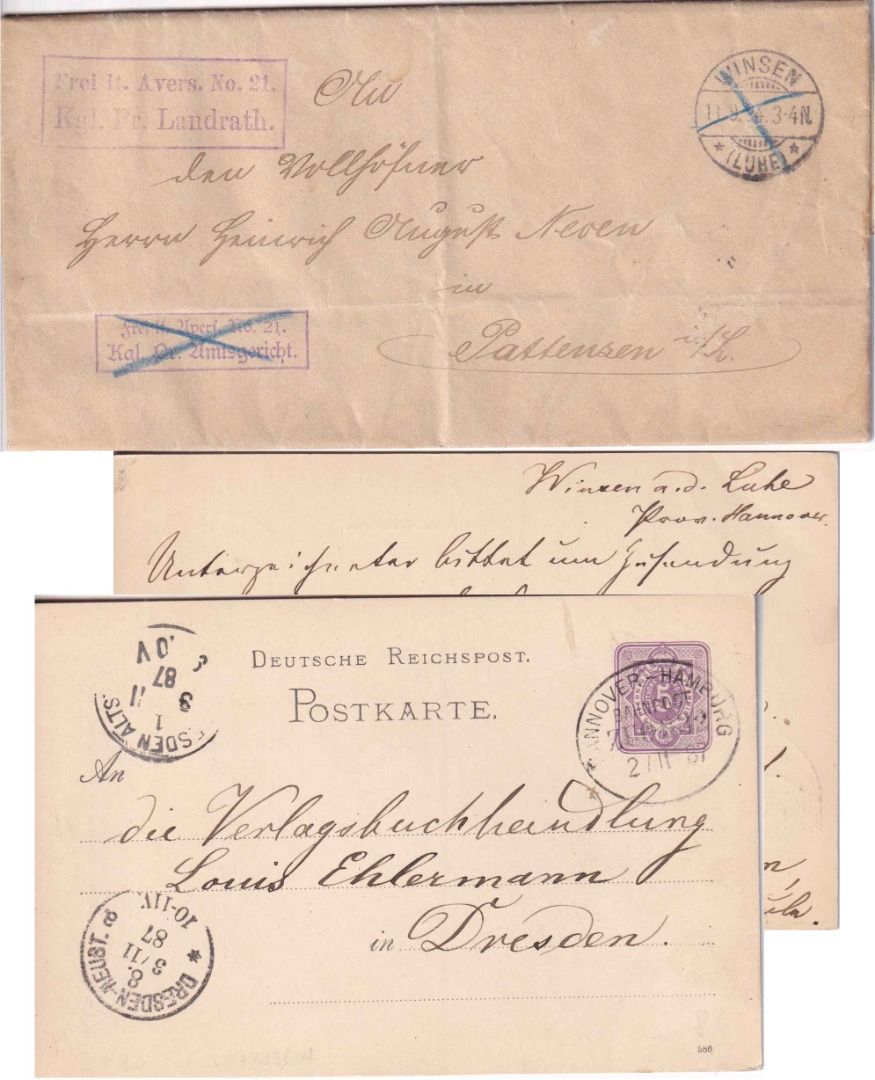 Frei lt. Avers. No. 21.
Kgl. Pr. Landrath.
WINSEN
3-4N.
* (LUHE) *
An
den Vollhöfner
Herrn Heinrich August Neven
in
Pattensen i/L.
Frei lt. Avers. No. 21.
Kgl. Pr. Amtsgericht.
Winsen a. d. Luhe
Prov. Hannover.
Unterzeichneter bittet um Zusendung
DEUTSCHE REICHSPOST.
POSTKARTE.
5
HANNOVER-HAMBURG
BAHNPOST
2/11 87
DRESDEN ALTS.
1
3
11
87
An
die Verlagsbuchhandlung
Louis Ehlermann
in Dresden.
* DRESDEN-NEUST. 8
8
3/11
87
10-11V.
586